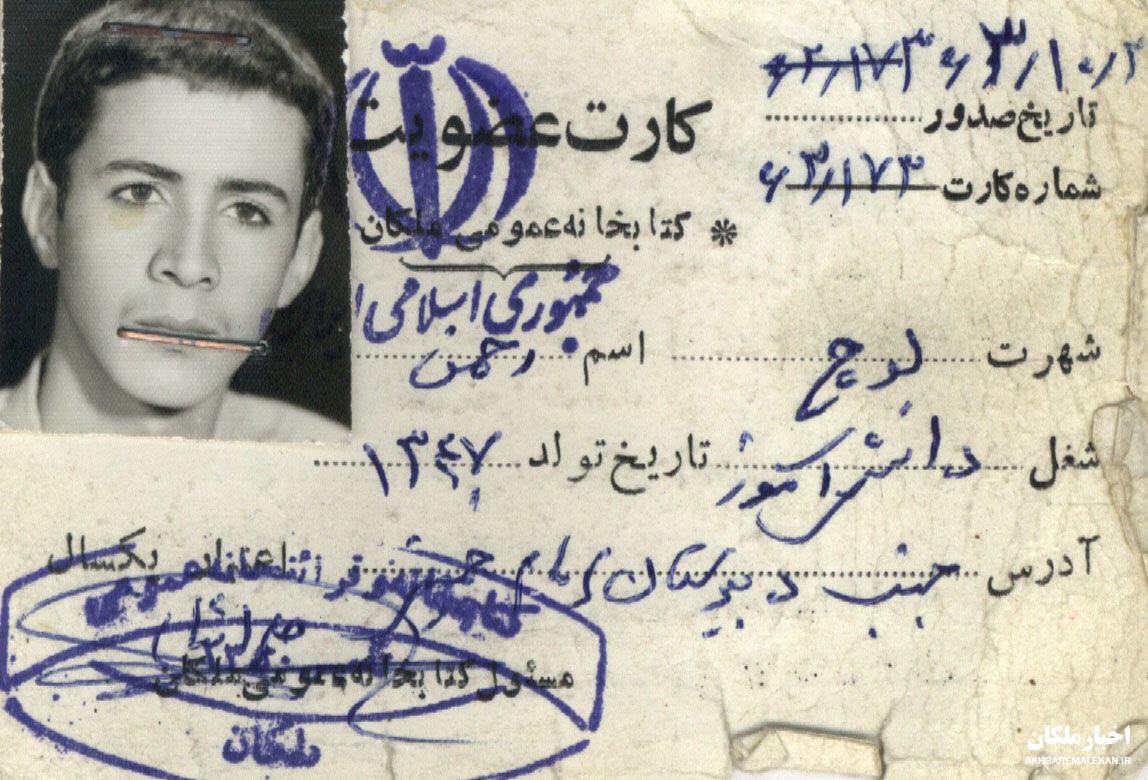 ۶۲/۱۷۳ ۶۳/۱۰/۲
تاریخ صدور
کارت عضویت
شماره کارت ۶۳/۱۷۳
* کتابخانه عمومی ملکان
جمهوری اسلامی ایران
شهرت لوچ اسم رحمن
شغل دانش آموز تاریخ تولد ۱۳۴۷
آدرس جنب دبیرستان امام خمینی
اعتبار یکسال
مسئول کتابخانه عمومی ملکان
ملکان
اخبار ملکان
AKHBAREMALEKAN.IR